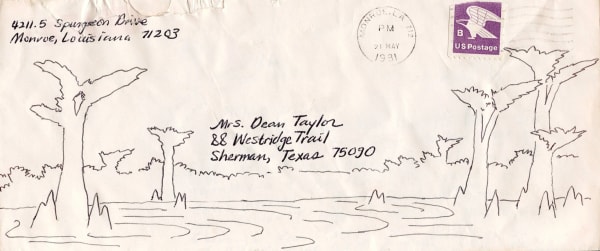 4211.5 Spurgeon Drive
Monroe, Louisiana 71203
MONROE, LA
PM
21 MAY
1981
B
US Postage
Mrs. Dean Taylor
88 Westridge Trail
Sherman, Texas 75090